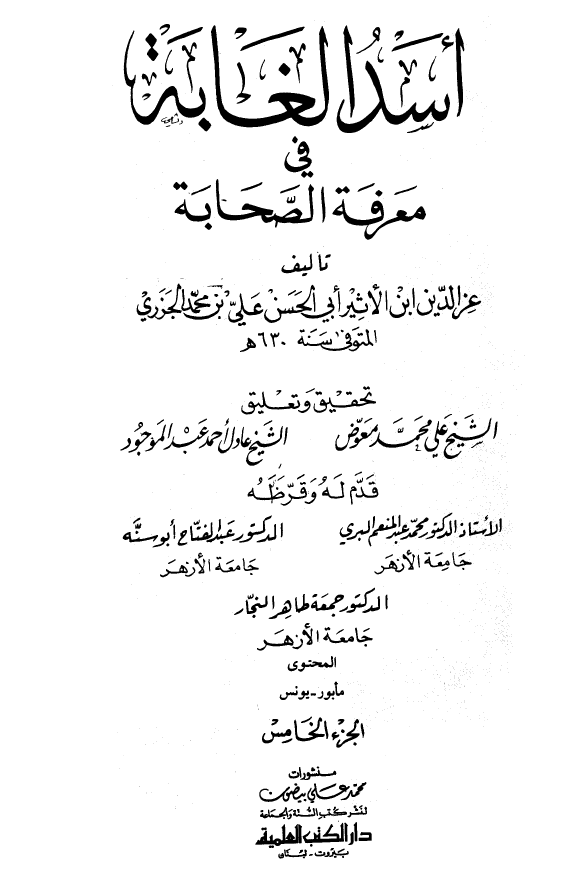 أسد الغابة
في
معرفة الصحابة
تأليف
عز الدين ابن الأثير أبي الحسن علي بن محمد الجزري
المتوفى سنة ٦٣٠ هـ
تحقيق وتعليق
الشيخ علي محمد معوض الشيخ عادل أحمد عبد الموجود
قدَّم لَهُ وَقَرَّظَهُ
الأستاذ الدكتور محمد عبد المنعم البري الدكتور عبد الفتاح أبو سنَّه
جامعة الأزهر جامعة الأزهر
الدكتور جمعة طاهر النجّار
جامعة الأزهر
المحتوى
مأبور - يونس
الجزء الخامس
منشورات
محمد علي بيضون
لنشر كتب السنة والجماعة
دار الكتب العلمية
بيروت - لبنان